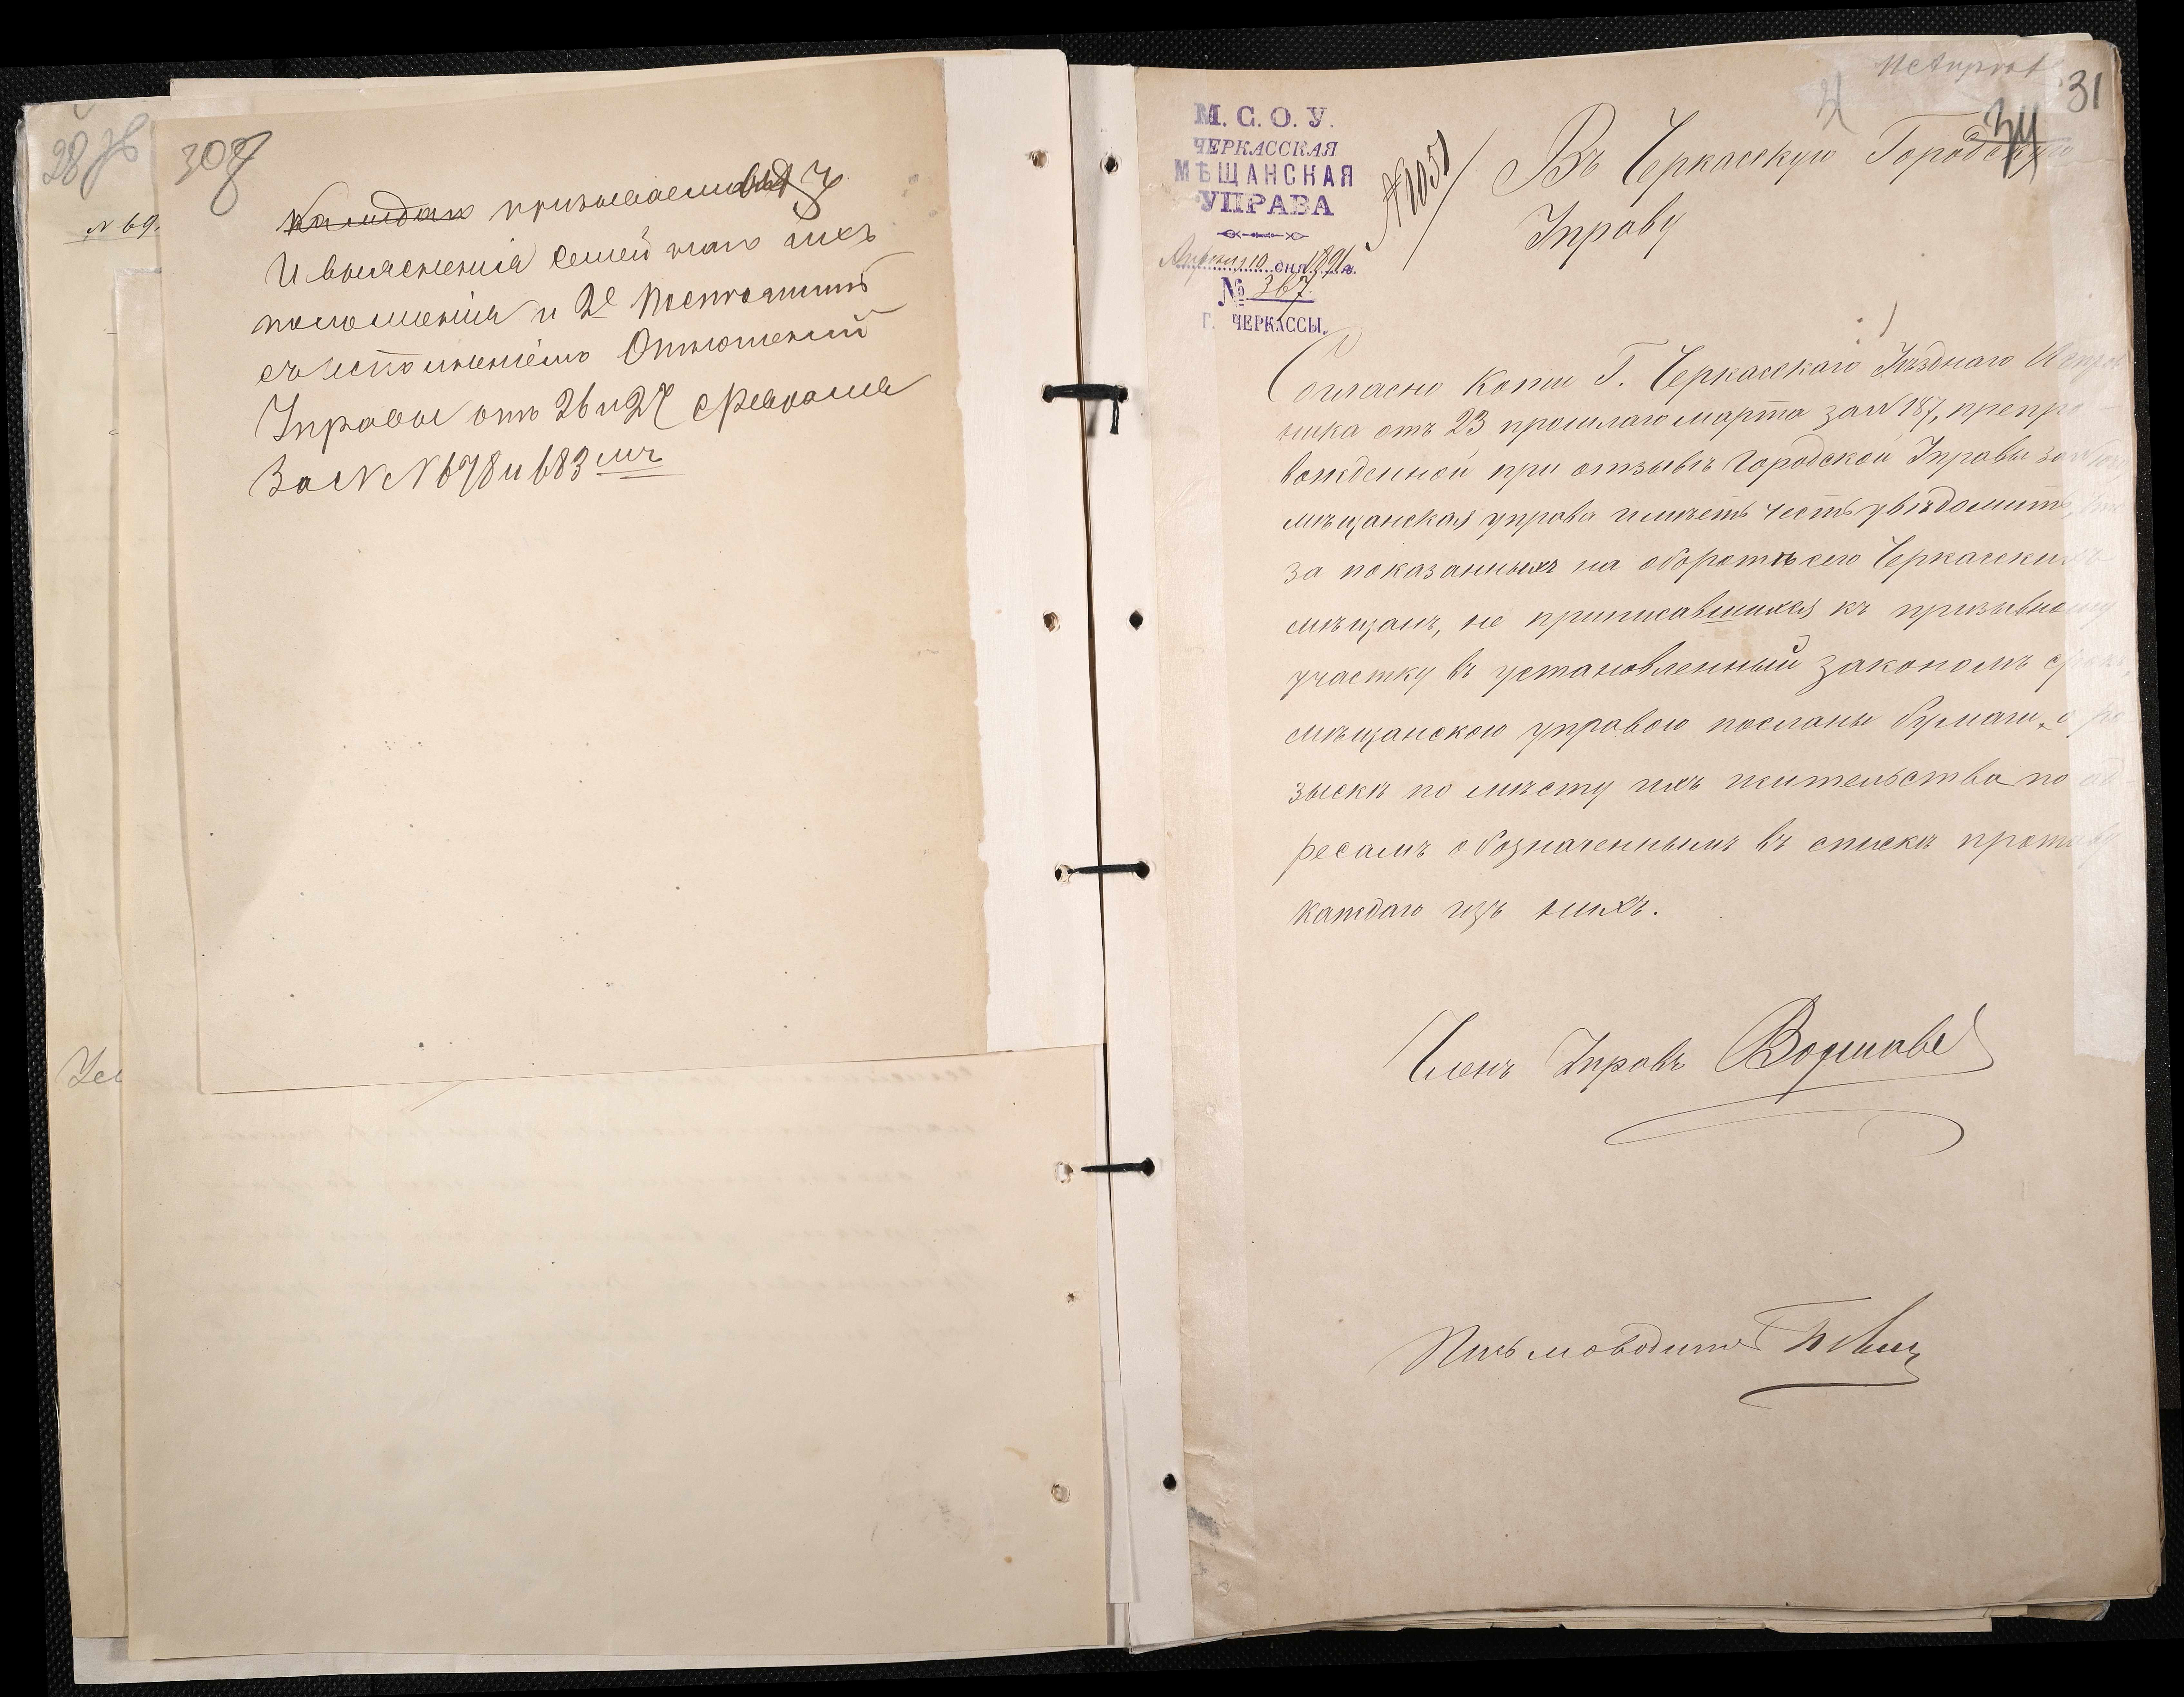 28
№ 69.
30
каждаго призываемыхъ
И выясненія семейнаго ихъ
положенія и 2е Поспешить
съ исполненіемъ Отношеній
Управы отъ 26 и 27 февраля
За №№ 678 и 683мъ
31
34
М. С. О. У.
ЧЕРКАССКАЯ
МѢЩАНСКАЯ
УПРАВА
Апрѣля 10 дня 1891 г.
№ 367
Г. ЧЕРКАССЫ.
№ 1051
Въ Черкасскую Городскую
Управу
Согласно копіи Г. Черкасскаго Уѣзднаго Исправ
ника отъ 23 прошлаго марта за № 187, препро-
вожденной при отзывѣ Городской Управы за №
мѣщанская управа имѣетъ честь увѣдомить,
за показанныхъ на оборотѣ сего Черкасскихъ
мѣщанъ, не приписавшихся къ призывному
участку въ установленный закономъ срокъ,
мѣщанскою управою посланы бумаги, о ро
зыскѣ по мѣсту ихъ жительства по ад-
ресамъ обозначеннымъ въ спискѣ противу
каждаго изъ нихъ.
Членъ Управы
Письмоводитель